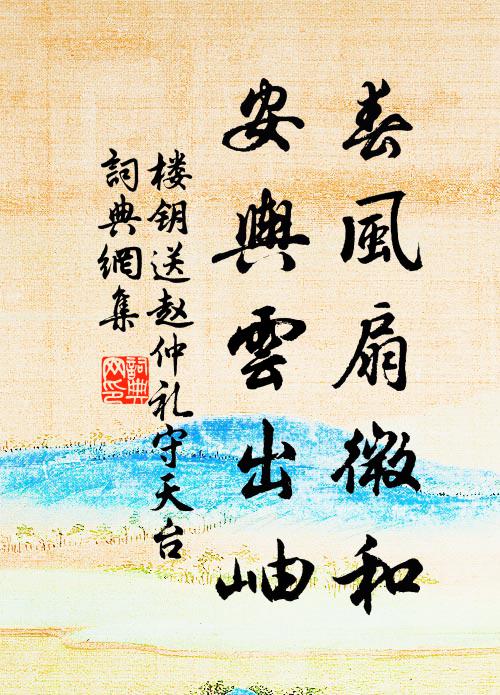 春風扇微和
安輿雲出岫
楼钥送赵仲礼守天台
詞典網集
詞典
网印